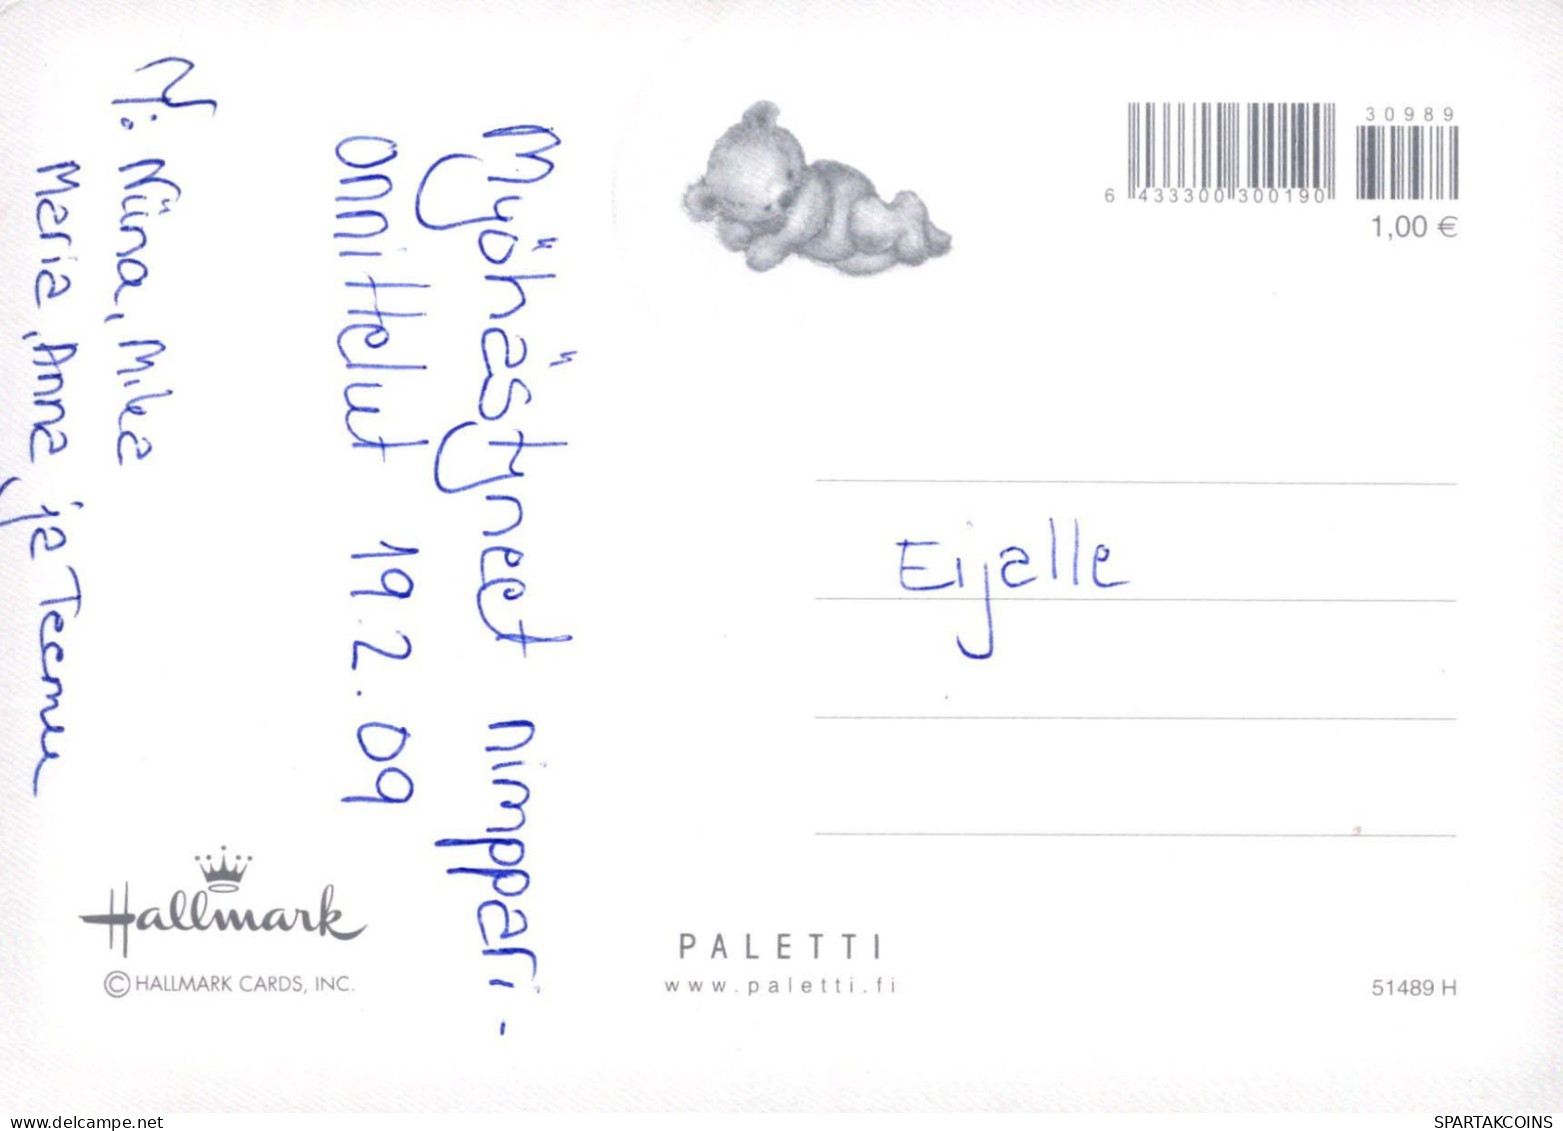 Myöhästyneet nimppari-
onnittelut 19.2.09
T: Niina, Mika
Maria, Anna ja Teemu
Eijalle
30989
6 433300 300190
1,00 €
Hallmark
© HALLMARK CARDS, INC.
PALETTI
www.paletti.fi
51489 H
https://www.delcampe.net
SPARTAKCOINS